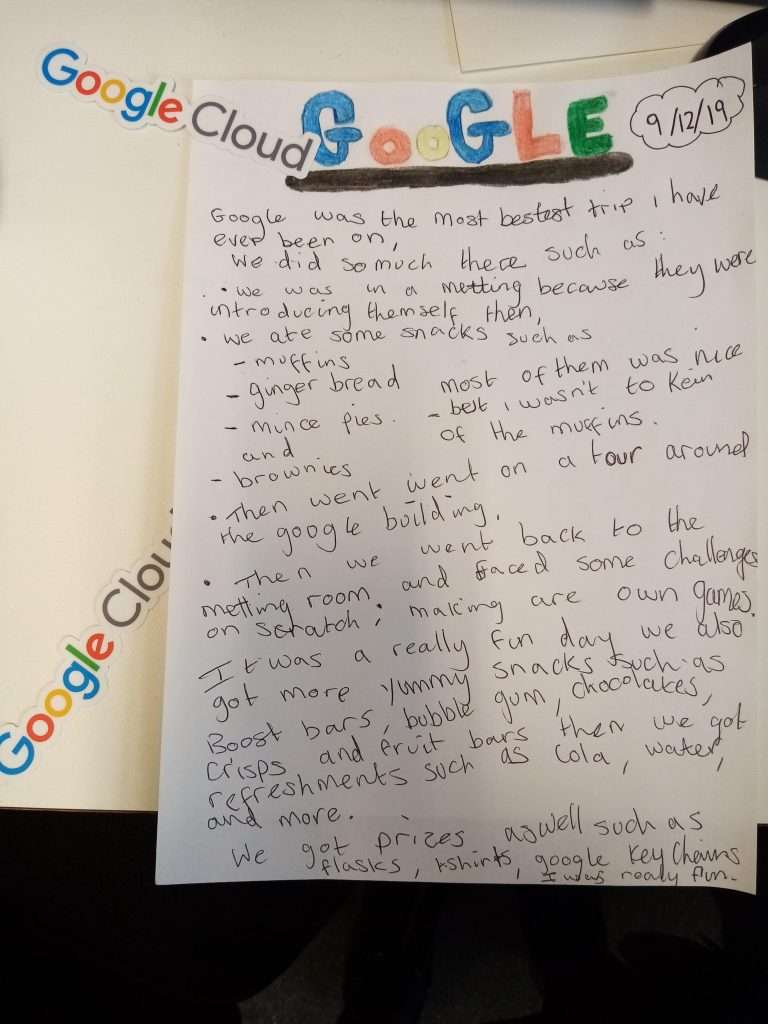 Google Cloud
GOOGLE
9/12/19
Google was the most bestest trip i have
ever been on,
We did so much there such as:
• we was in a metting because they were
introducing themself then,
• we ate some snacks such as
- muffins
- ginger bread
- mince pies.
and
- brownies
most of them was nice
- best i wasn't to kein
of the muffins.
• Then went went on a tour around
the google building.
• Then we went back to the
metting room and faced some challenges
on scratch; making are own games.
It was a really fun day we also
got more yummy snacks such as
Boost bars, bubble gum, chocolates,
crisps and fruit bars then we got
refreshments such as cola, water,
and more.
We got prizes aswell such as
flasks, tshirts, google key chains
I was realy fun.
Google Clou